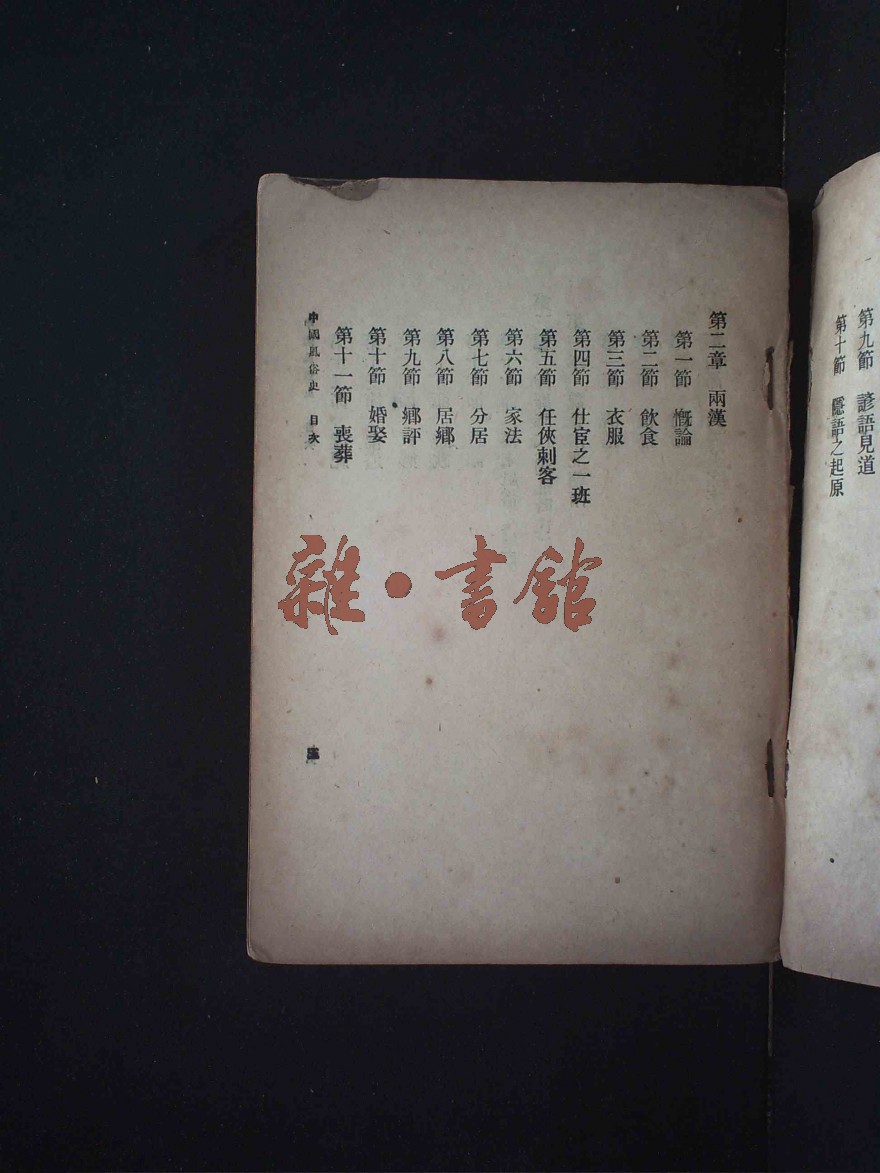 第九節　諺語見道
第十節　隱語之起原
第二章　兩漢
第一節　慨論
第二節　飲食
第三節　衣服
第四節　仕宦之一班
第五節　任俠刺客
第六節　家法
第七節　分居
第八節　居鄉
第九節　鄉評
第十節　婚娶
第十一節　喪葬
中國風俗史　目次
雜·書館